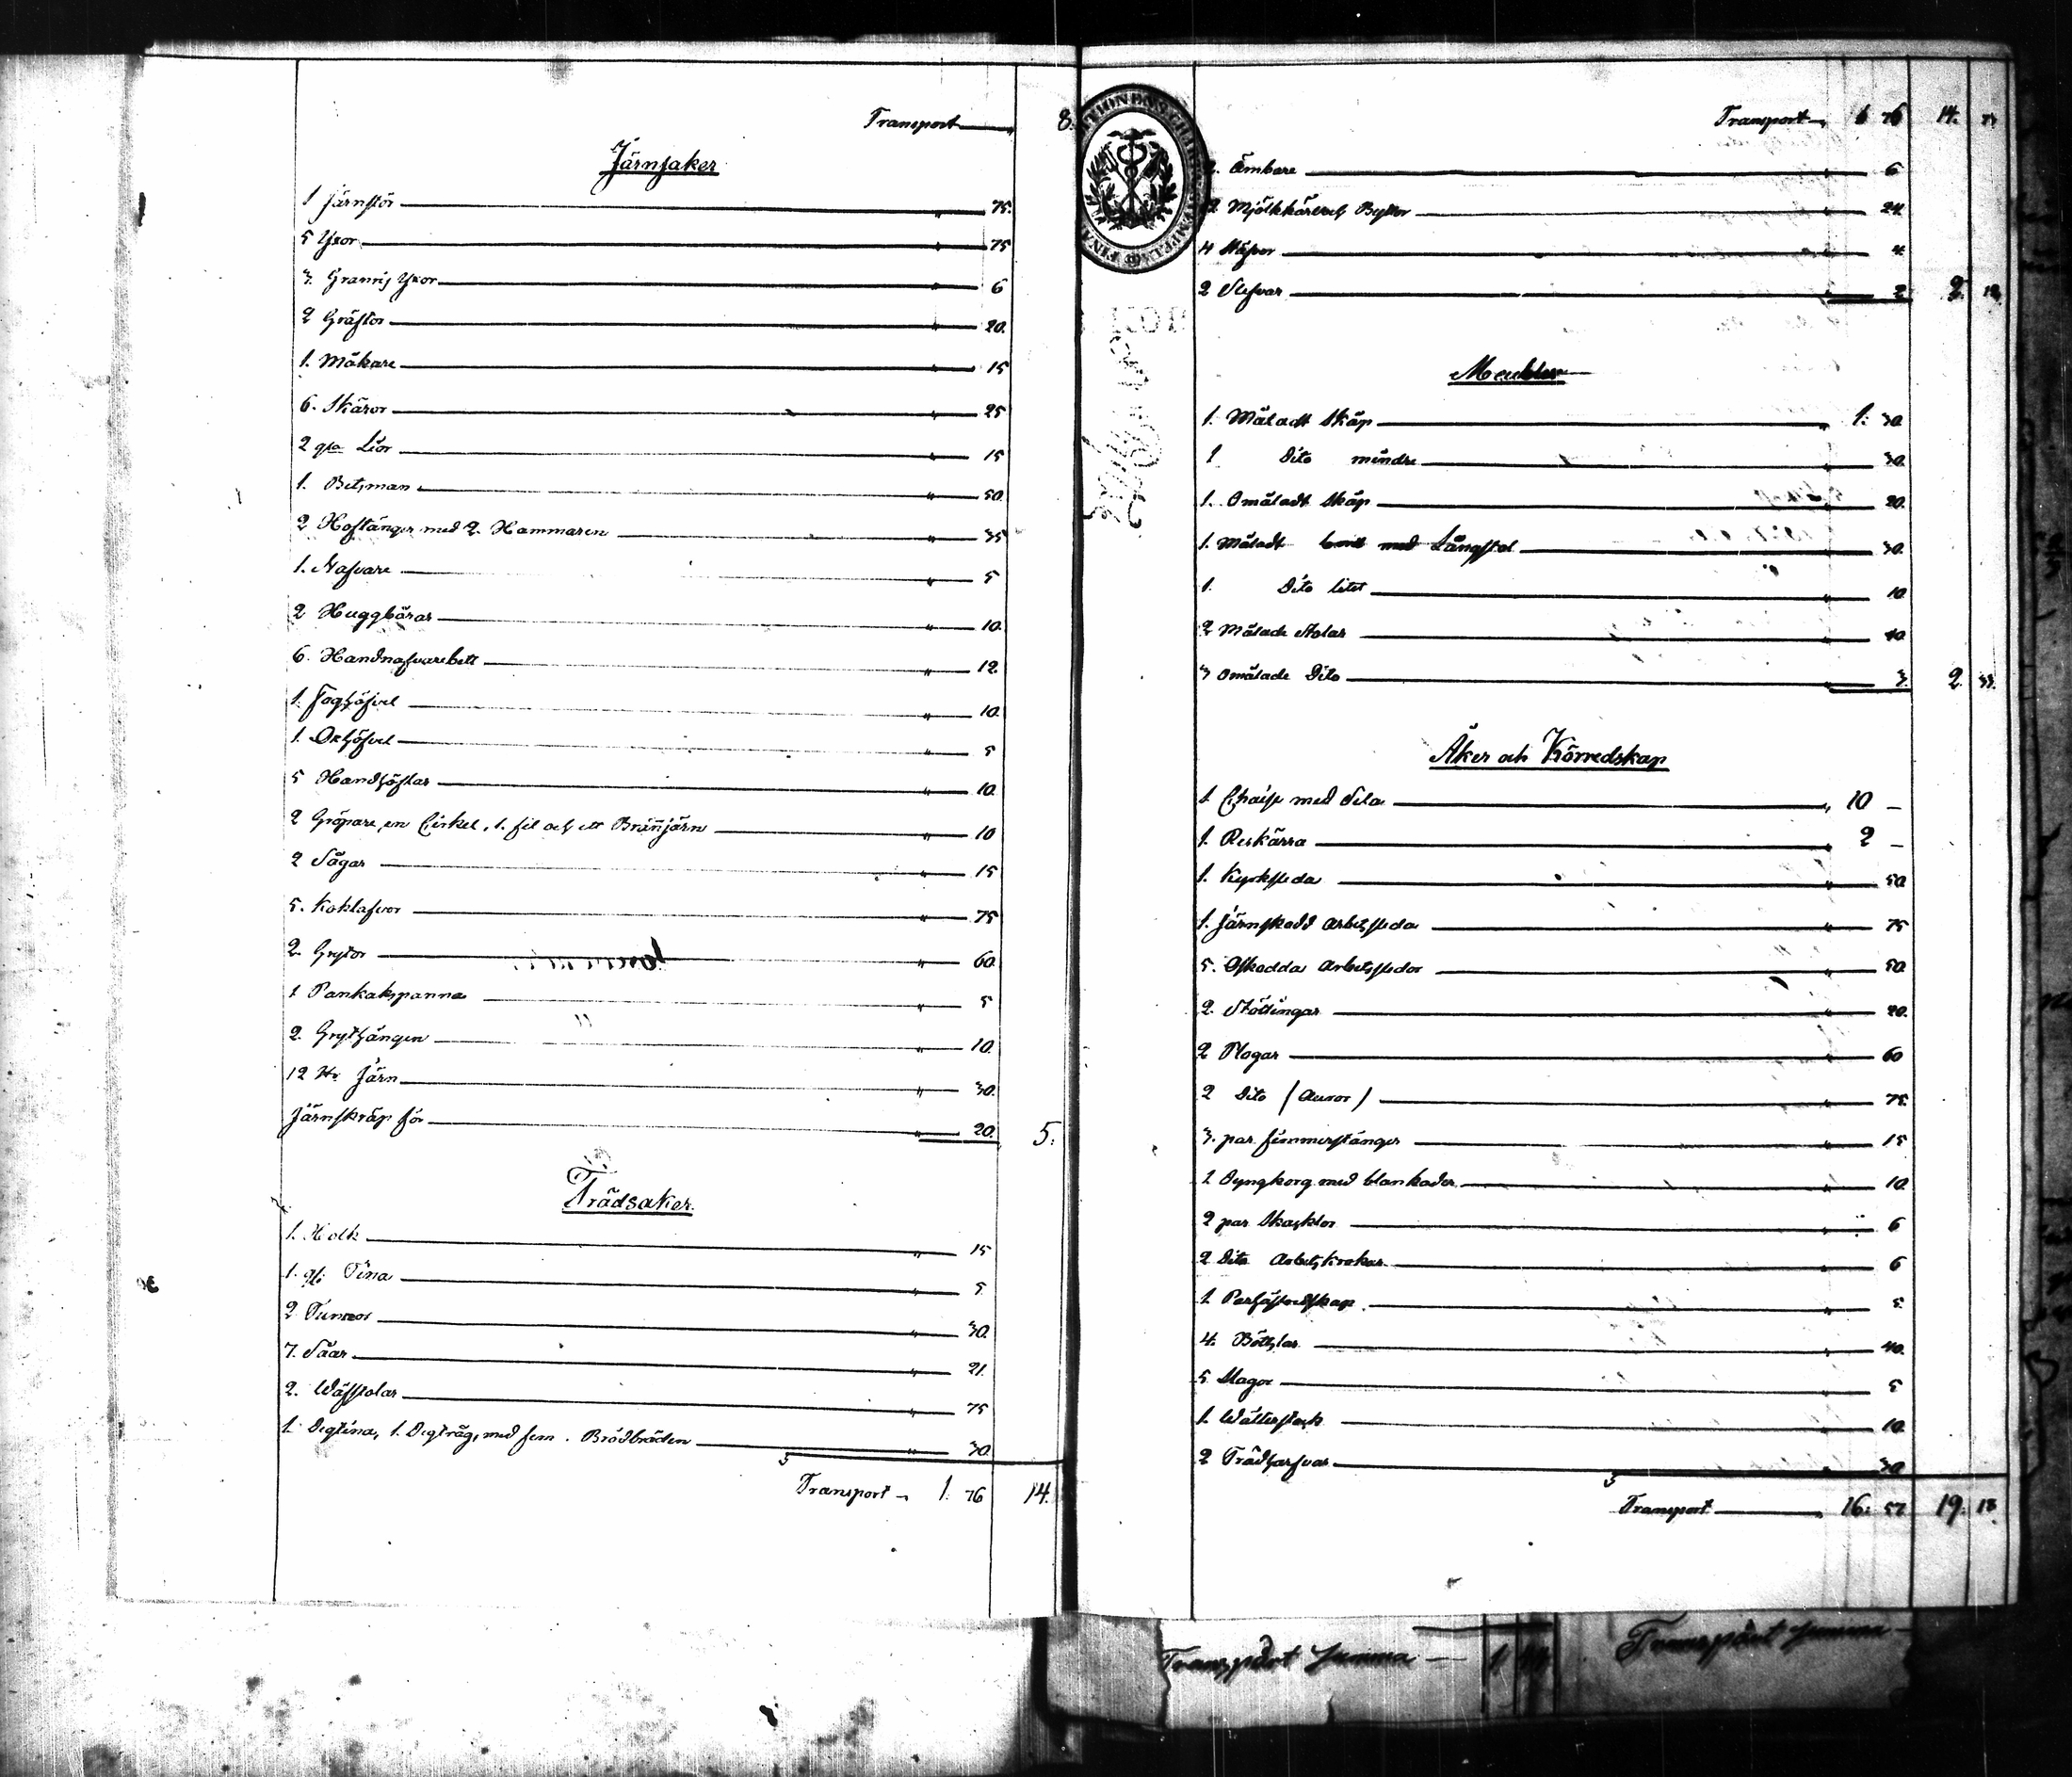 Transport 8.
Järnsaker
1 Järnstör " 75.
5 Yxor " 75
3. Granris Yxor " 6
2 Gräftor " 20.
1. Måkare " 15
6. Skäror " 25
2 gla Lior " 15
1. Betsman " 50.
2 Hoftänger med 2. Hammaren " 35
1. Nafvare " 5
2 Huggbörar " 10.
6. Handnafvarebett " 12.
1. Foghöfvel " 10.
1. Okhöfvel " 5
5 Handhöflar " 10.
2 Gröpare, en Cirkel, 1. fil och ett Brännjärn " 10
2 Sågar " 15
5. Koklafvor " 75
2. Grytor " 60.
1 Pankakspanna " 5
2. Grythängen " 10.
12 Järn " 30.
Järnskrap för " 20. 5:
Trädsaker.
1. Holk " 15
1. gl: Tina " 5.
2 Tunnor " 30.
7. Såar " 21.
2. Wäfstolar " 75
1. Degtina, 1. Degtråg, med fem. Brödbräden " 30.
Transport 1. 76 14.
Transport 1 76 14.
2. Ämbare " 6
Mjölkkärel och Byttor " 24.
4 Stäfvor " 4.
2 Slefvar " 2 2. 12
Meubler
1. Måladt Skåp 1: 30.
1 Dito mindre " 30.
1. Omåladt Skåp " 20.
1. Måladt bord med Långstol " 30.
1. Dito litet " 10.
2 Målade Stolar " 10.
3 Omålade Dito " 3. 2. 33.
Åker och Körredskap
1 Chaise med Sela " 10 –
1. Reskärra " 2 –
1. Kyrksleda " 50
1. Järnskodd Arbetssleda " 75
5. Oskodda Arbetsslädor " 50.
2. Stöttingar " 20.
2 Plogar " 60
2 Dito (Auror) " 75.
3. par fimmerstänger " 15
1 Dyngkorg med blankader " 10.
2 par Skacklor " 6
2 Dito Arbetskrokar " 6
1 Parhästredskap " 5.
4. Bötslar " 40.
5 Slagor " 5
1. Wälterstock " 10.
2 Trädharfvar " 30
Transport 16: 57. 19. 13.
Transpårt summa
Transpårt summa